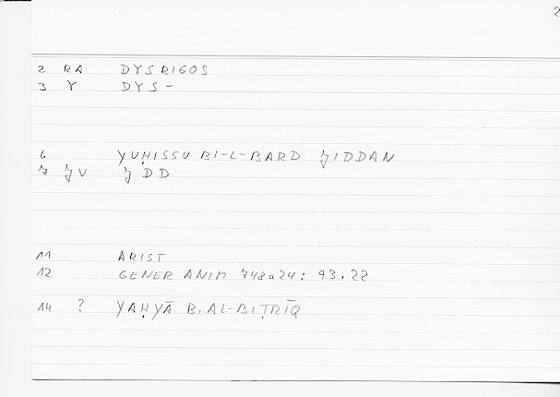 2
2 RA DYSRIGOS
3 Y DYS-
6 YUḤISSU BI-L-BARD ǦIDDAN
7 ǦV ǦDD
11 ARIST
12 GENER ANIM 748a24: 93.22
14 ? YAḤYĀ B. AL-BIṬRĪQ